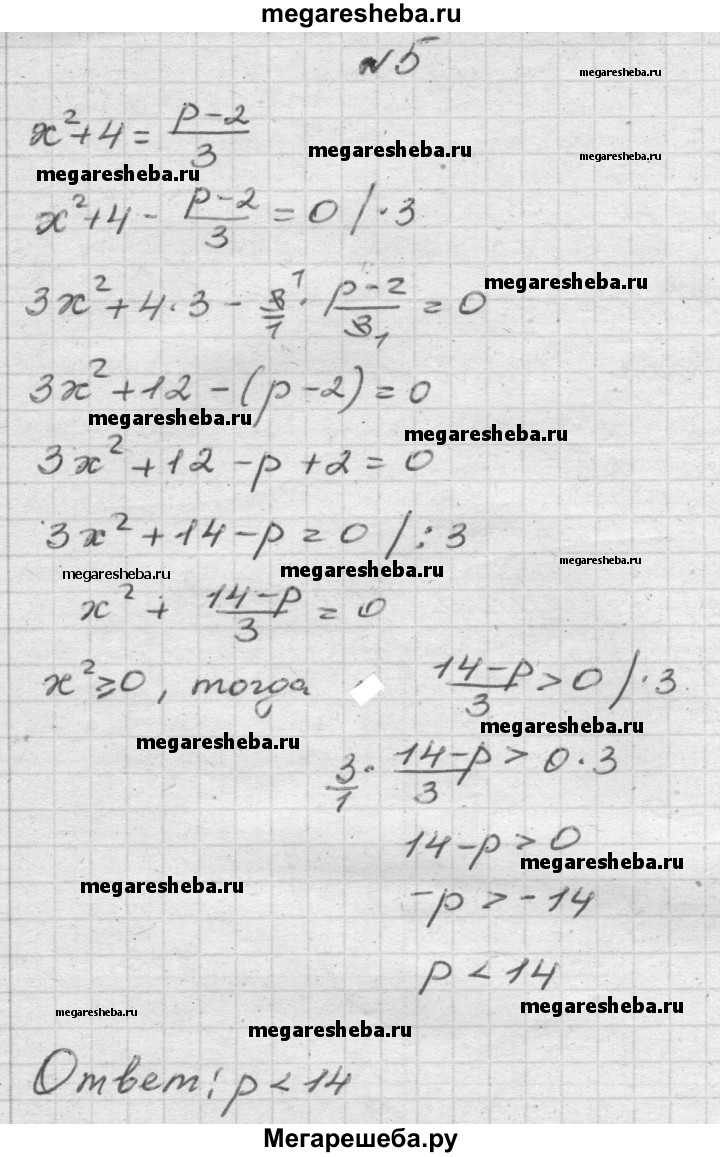 megaresheba.ru
№5
megaresheba.ru
x²+4 = (p-2)/3
megaresheba.ru
megaresheba.ru
megaresheba.ru
x²+4 - (p-2)/3 = 0 /·3
megaresheba.ru
3x²+4·3 - 3/1 · (p-2)/3 = 0
1
1
3x²+12-(p-2)=0
megaresheba.ru
megaresheba.ru
3x²+12-p+2=0
3x²+14-p=0 /:3
megaresheba.ru
megaresheba.ru
megaresheba.ru
x² + (14-p)/3 = 0
x²≥0, тогда (14-p)/3 > 0 /·3
megaresheba.ru
megaresheba.ru
3/1 · (14-p)/3 > 0·3
14-p>0
megaresheba.ru
megaresheba.ru
-p>-14
p<14
megaresheba.ru
megaresheba.ru
megaresheba.ru
Ответ: p<14
Мегарешеба.ру